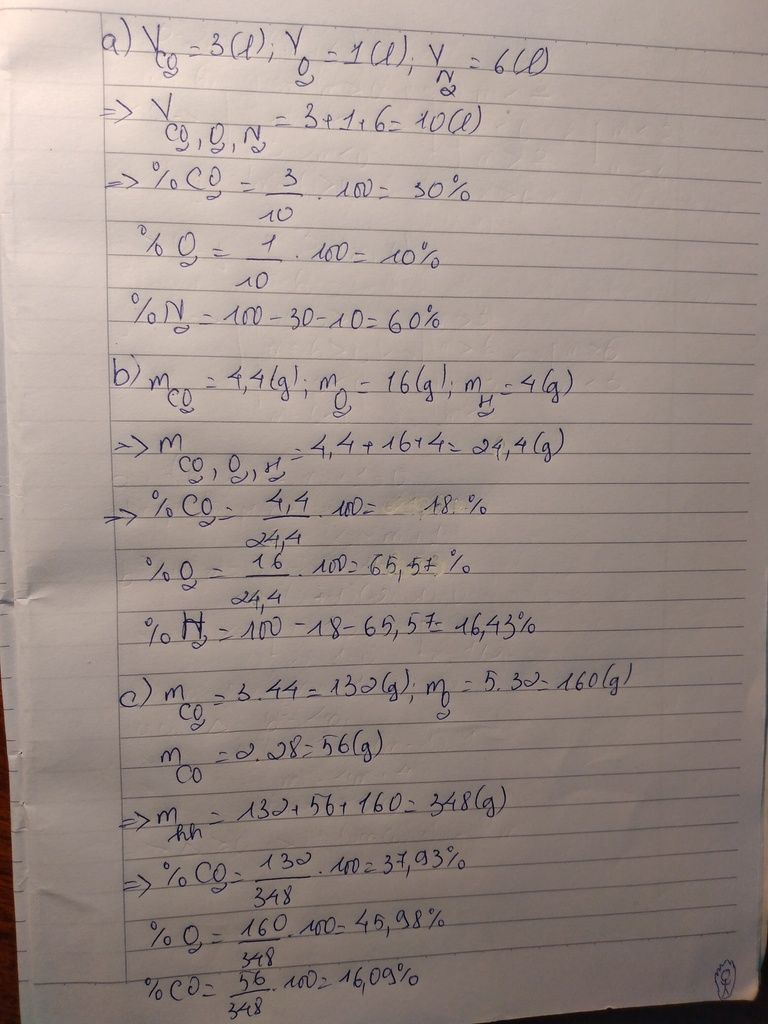 a) V_CO₂ = 3(l); V_O₂ = 1(l); V_N₂ = 6(l)
=> V_CO₂, O₂, N₂ = 3+1+6 = 10(l)
=> % CO₂ = 3/10 . 100 = 30%
% O₂ = 1/10 . 100 = 10%
% N₂ = 100 - 30 - 10 = 60%
b) m_CO₂ = 4,4(g); m_O₂ = 16(g); m_H₂ = 4(g)
=> m_CO₂, O₂, H₂ = 4,4 + 16 + 4 = 24,4(g)
=> % CO₂ = 4,4/24,4 . 100 = 18 %
% O₂ = 16/24,4 . 100 = 65,57 %
% H₂ = 100 - 18 - 65,57 = 16,43%
c) m_CO₂ = 3.44 = 132(g); m_O₂ = 5.32 = 160(g)
m_CO = 2.28 = 56(g)
=> m_hh = 132 + 56 + 160 = 348(g)
=> % CO₂ = 132/348 . 100 = 37,93%
% O₂ = 160/348 . 100 = 45,98%
% CO = 56/348 . 100 = 16,09%